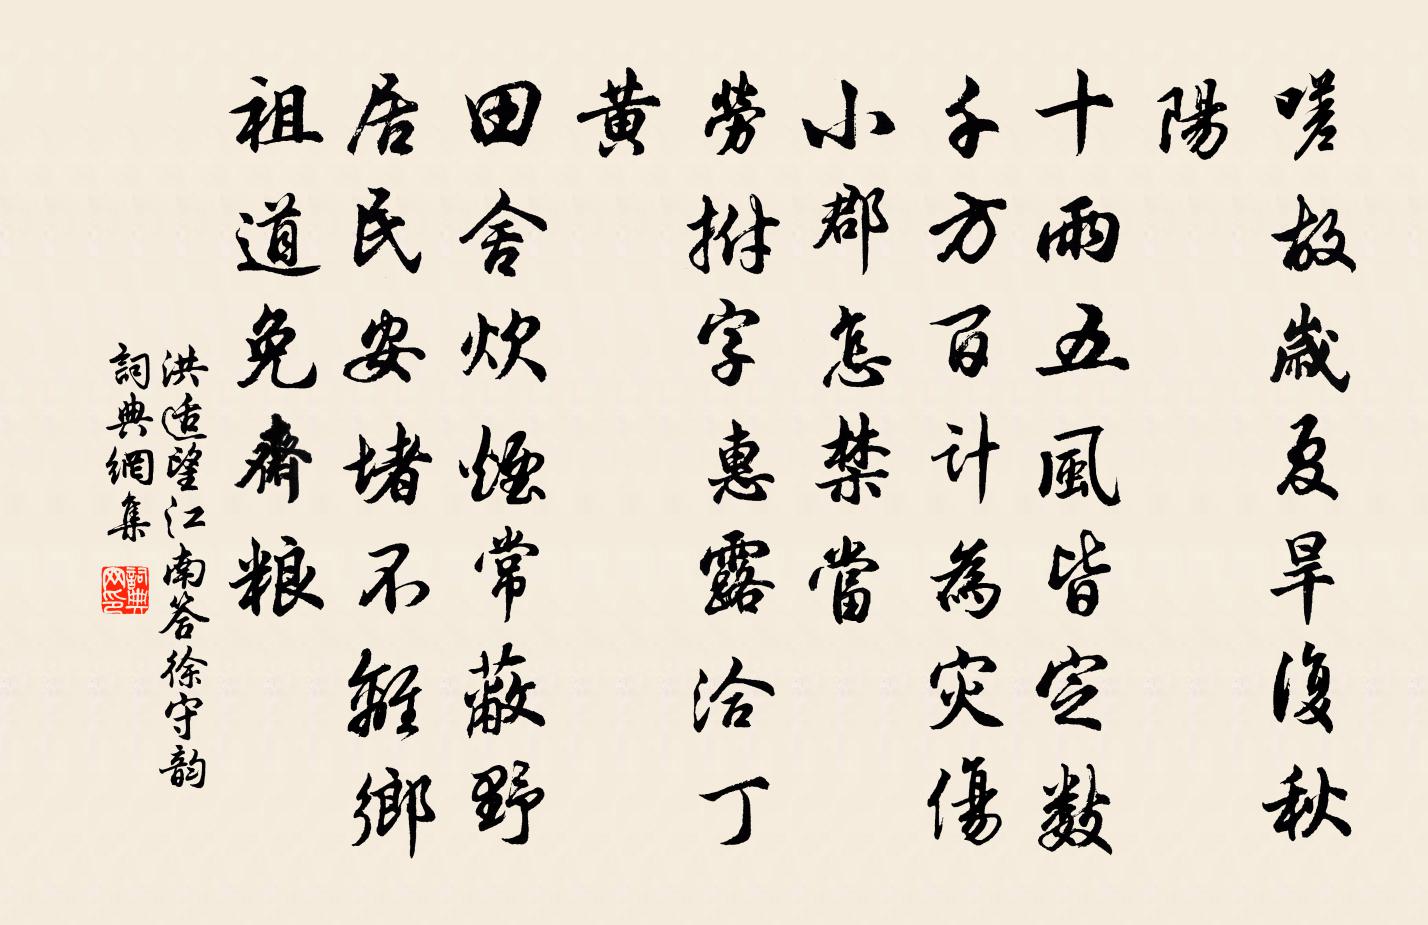 嗟故歲夏旱復秋
陽
十雨五風皆定數
千方百計為灾傷
小郡怎禁當
勞拊字惠露洽丁
黃
田舍炊煙常蔽野
居民安堵不離鄉
祖道免齋粮
洪适望江南答徐守韵
詞典網集
詞典网印